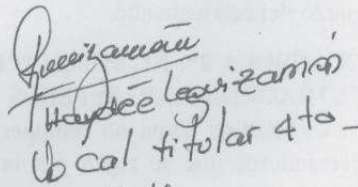 Haydée Leguizamón
Vocal titular 4to -